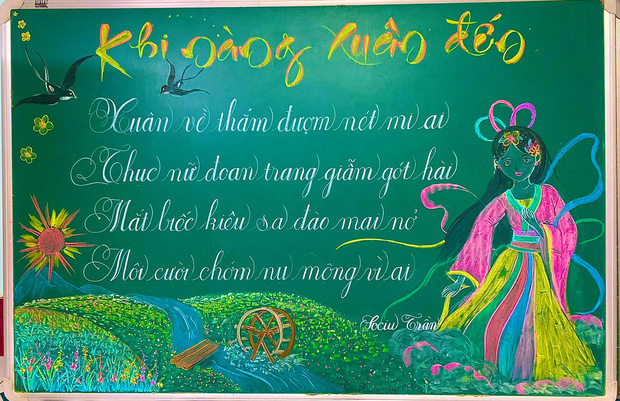 Khi nàng Xuân đến
Xuân về thắm đượm nét mi ai
Thục nữ đoan trang giẫm gót hài
Mắt biếc kiêu sa đào mai nở
Môi cười chớm nụ mông vì ai
Trần